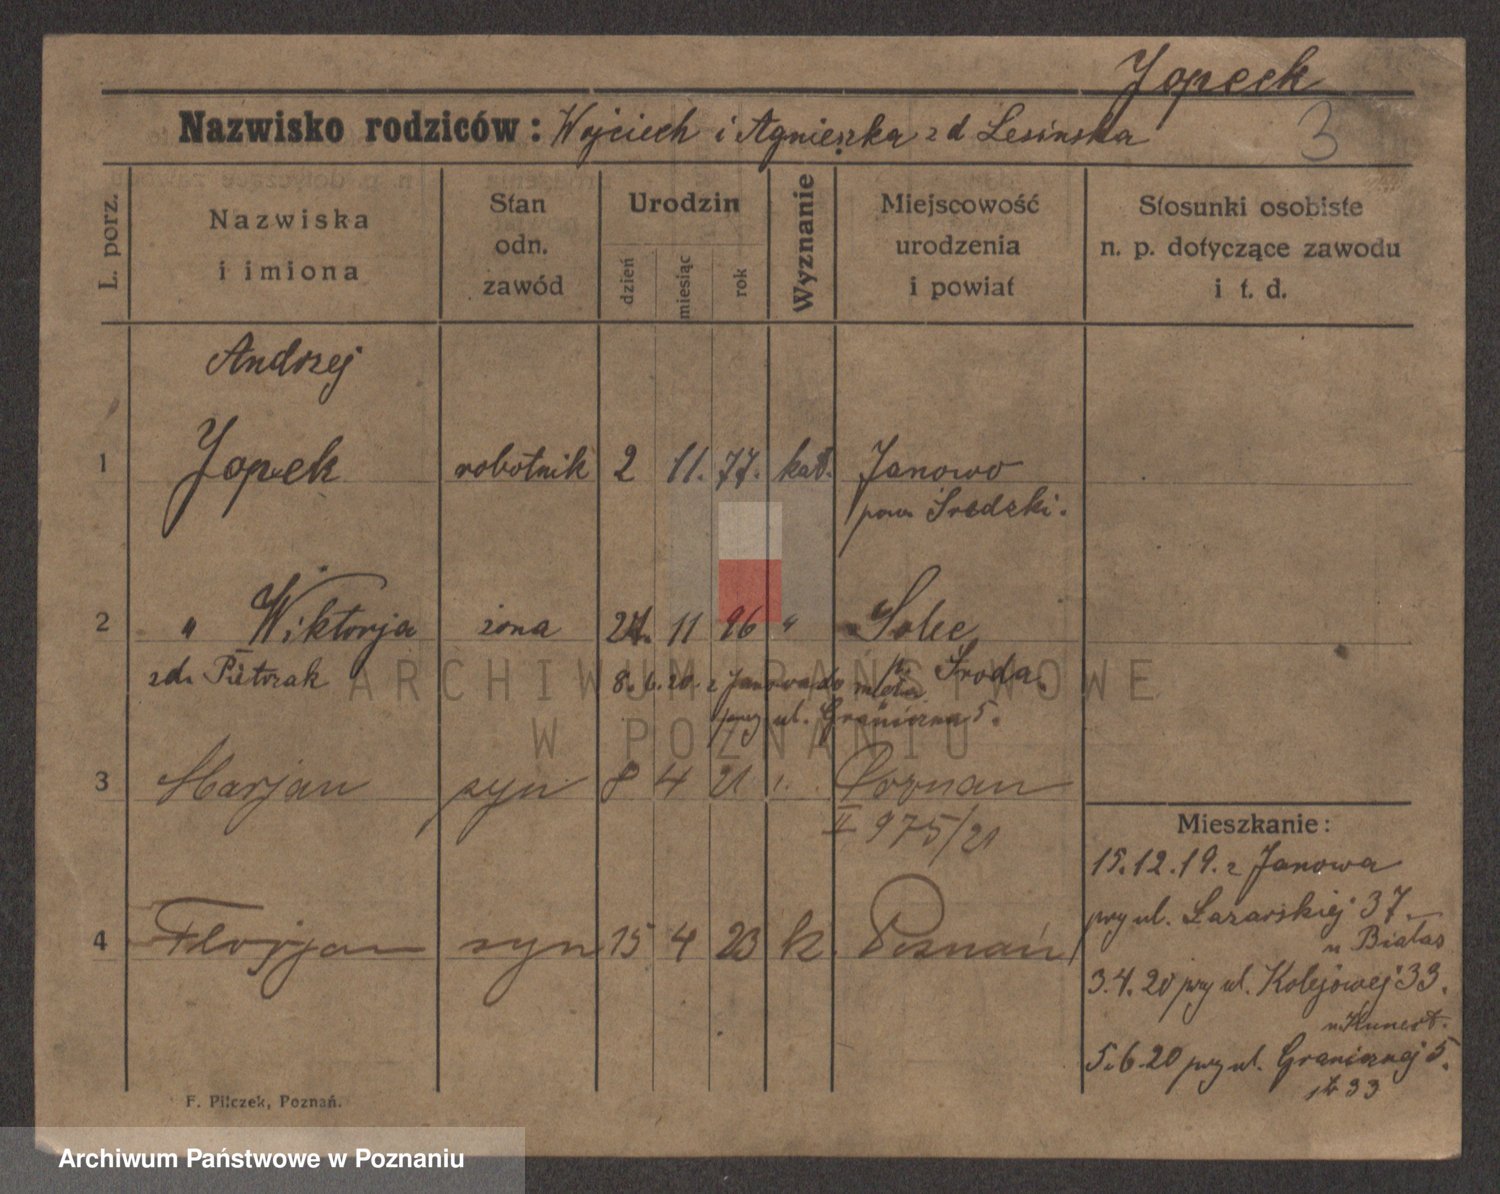 Jopeck
Nazwisko rodziców: Wojciech i Agnieszka zd Lesińska
3
L. porz.
Nazwiska
i imiona
Stan
odn.
zawód
Urodzin
dzień
miesiąc
rok
Wyznanie
Miejscowość
urodzenia
i powiat
Stosunki osobiste
n. p. dotyczące zawodu
i t. d.
Andrzej
1 Jopek robotnik 2 11. 77. kat. Janowo
pow Średzki.
2 " Wiktorja żona 24. 11 96 " Solec
zd. Pietrzak p. Środa.
8.6.20. z Janowa do męża
przy ul. Graniczna 5.
3 Marjan syn 8 4 21 Poznań
II 975/21
4 Florjan syn 15 4 23 k. Poznań
Mieszkanie:
15.12.19. z Janowa
przy ul. Łazarskiej 37.
u Białas
3.4.20 przy ul. Kolejowej 33.
u Kunert.
5.6.20 przy ul. Granicznej 5.
33
F. Pilczek, Poznań.
ARCHIWUM PAŃSTWOWE
W POZNANIU
Archiwum Państwowe w Poznaniu